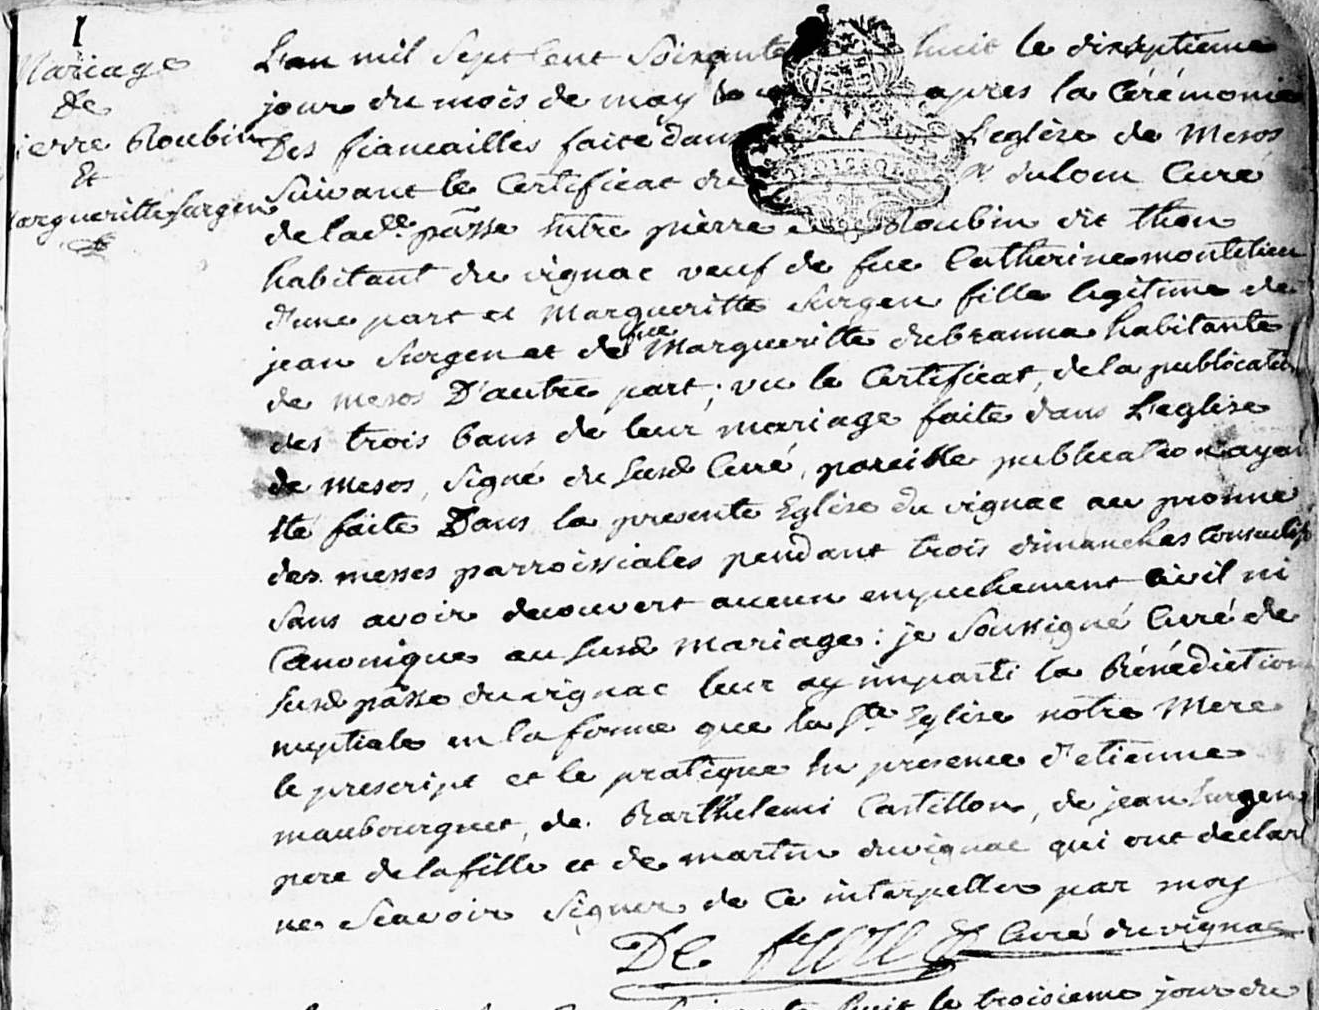 1
Mariage
de
ierre Roubin
Et
argueritte surgen
L'an mil sept cent soixante huit le dixseptieme
jour du mois de may apres la Cérémonie
Des fiancailles faite dans L'eglise de Mesos
suivant le Certificat de dulom Curé
de lad.e pâsse entre pierre Roubin dit then
habitant du vignac veuf de fue Catherine montelieu
d'une part et Margueritte surgen fille legitime de
jean surgen et de fue Margueritte dubranna habitante
de mesos D'autre part; vu le Certificat, de la publication
des trois bans de leur mariage faite dans L'eglise
de mesos, signé du susd Curé, pareille publication ayan
ete faite Dans la presente Eglise du vignac au pronne
des messes parroissiales pendant trois dimanches consecutifs
sans avoir decouvert aucun empechement Civil ni
Canonique au susd mariage: je soussigné Curé de
susd pâsse du vignac leur ay imparti la Bénédiction
nuptiale en la forme que la Ste Eglise notre Mere
le prescript et le pratique en presence d'etienne
maubourguet, de Barthelemi Castillon, de jean surgen
pere de la fille et de martin duvignac qui ont declar
ne scavoir signer de ce interpelles par moy
De Curé du vignac
huit le troisieme jour du